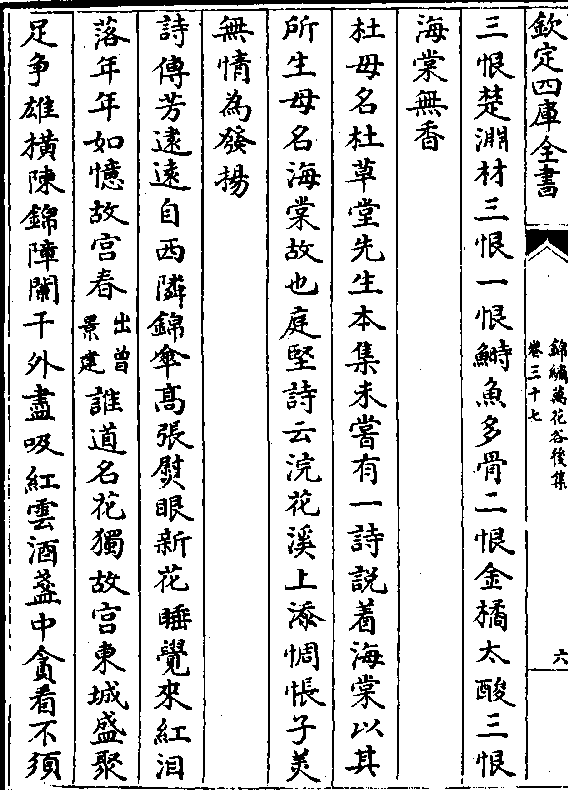 欽定四庫全書
錦繡萬花谷後集
卷三十七
六
三恨楚淵材三恨一恨鰣魚多骨二恨金橘太酸三恨
海棠無香
杜母名杜草堂先生本集未嘗有一詩説着海棠以其
所生母名海棠故也庭堅詩云浣花溪上添惆悵子美
無情為發揚
詩傳芳逮遠自西隣錦傘髙張熨眼新花睡覺來紅泪
落年年如憶故宫春出曾景建誰道名花獨故宫東城盛聚
足争雄横陳錦障闌干外盡吸紅雲酒盞中貪看不須